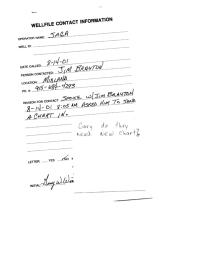 WELLFILE CONTACT INFORMATION
OPERATOR NAME: SAGA
WELL ID:
DATE CALLED: 8-14-01
PERSON CONTACTED: JIM BRANTON
LOCATION: MIDLAND
PH. #: 915-684-4293
REASON FOR CONTACT: SPOKE W/JIM BRANTON
8-14-01 8:05 AM ASKED HIM TO SEND
A CHART IN.
Gary do they
need new chart?
LETTER: YES NO
INITIAL: